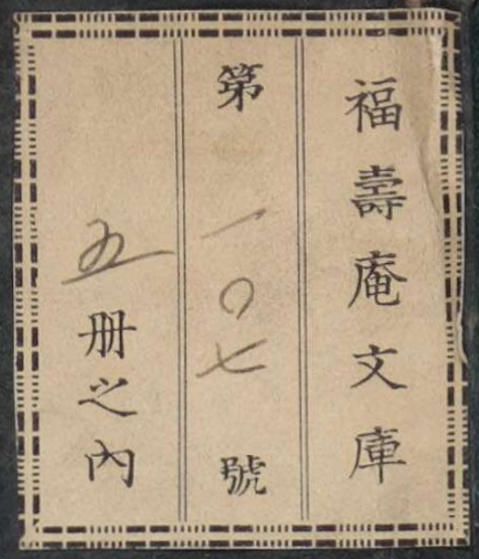 福壽庵文庫
第一〇七號
五册之內